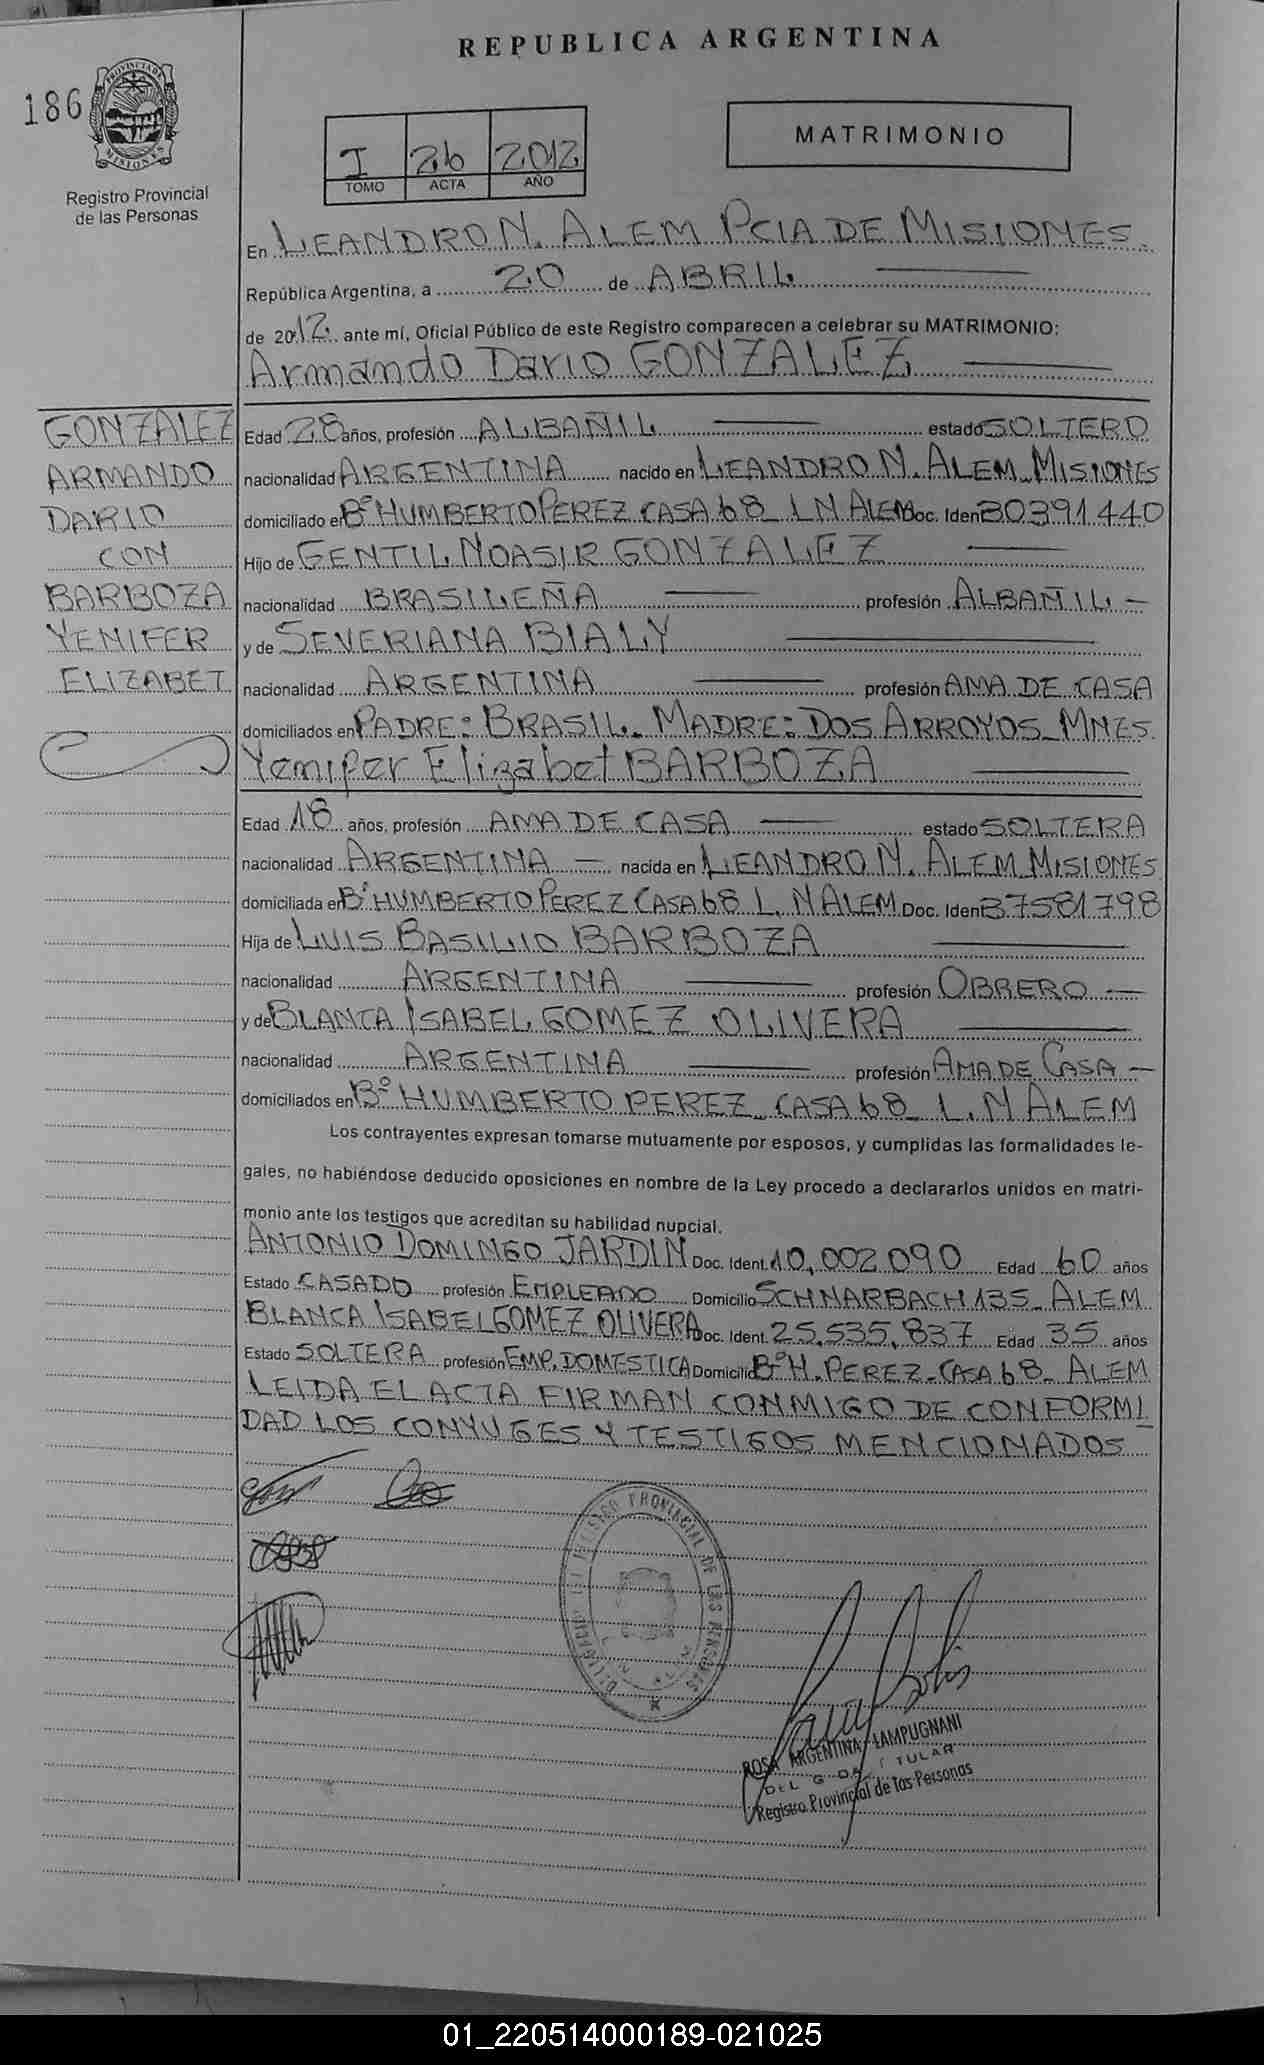 REPUBLICA ARGENTINA
186
PROVINCIA DE
MISIONES
Registro Provincial
de las Personas
I 26 2012
TOMO ACTA AÑO
MATRIMONIO
En LEANDRO N. ALEM PCIA DE MISIONES
República Argentina, a 20 de ABRIL
de 2012 ante mí, Oficial Público de este Registro comparecen a celebrar su MATRIMONIO:
Armando Dario GONZALEZ
GONZALEZ
ARMANDO
DARIO
CON
BARBOZA
YENIFER
ELIZABET
Edad 28 años, profesión ALBAÑIL estado SOLTERO
nacionalidad ARGENTINA nacido en LEANDRO N. ALEM MISIONES
domiciliado en Bº HUMBERTO PEREZ CASA 68 L N ALEM Doc. Iden 30391440
Hijo de GENTIL NOASIR GONZALEZ
nacionalidad BRASILEÑA profesión ALBAÑIL -
y de SEVERIANA BIALY
nacionalidad ARGENTINA profesión AMA DE CASA
domiciliados en PADRE: BRASIL. MADRE: DOS ARROYOS MNES.
Yenifer Elizabet BARBOZA
Edad 18 años, profesión AMA DE CASA estado SOLTERA
nacionalidad ARGENTINA - nacida en LEANDRO N. ALEM MISIONES
domiciliada en Bº HUMBERTO PEREZ CASA 68 L. N ALEM Doc. Iden 37581798
Hija de LUIS BASILIO BARBOZA
nacionalidad ARGENTINA profesión OBRERO -
y de BLANCA ISABEL GOMEZ OLIVERA
nacionalidad ARGENTINA profesión AMA DE CASA -
domiciliados en Bº HUMBERTO PEREZ CASA 68 L. N ALEM
Los contrayentes expresan tomarse mutuamente por esposos, y cumplidas las formalidades le-
gales, no habiéndose deducido oposiciones en nombre de la Ley procedo a declararlos unidos en matri-
monio ante los testigos que acreditan su habilidad nupcial.
ANTONIO DOMINGO JARDIN Doc. Ident. 10,002 090 Edad 60 años
Estado CASADO profesión EMPLEADO Domicilio SCHNARBACH 135 - ALEM
BLANCA ISABEL GOMEZ OLIVERA Doc. Ident. 25,535,837 Edad 35 años
Estado SOLTERA profesión EMP. DOMESTICA Domicilio Bº H. PEREZ - CASA 68 - ALEM
LEIDA EL ACTA FIRMAN CONMIGO DE CONFORMI
DAD LOS CONYUGES Y TESTIGOS MENCIONADOS
PROVINCIAL DE LAS PERSONAS
ROSA ARGENTINA LAMPUGNANI
Registro Provincial de las Personas
01_220514000189-021025